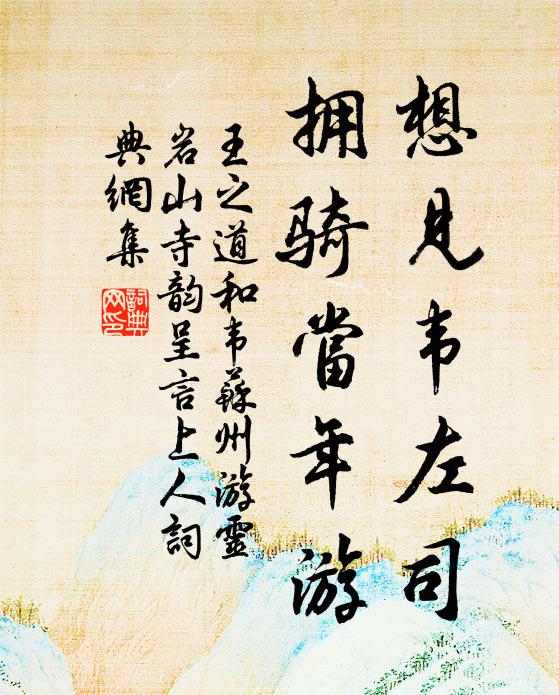 想見韦左司
拥骑當年游
王之道和韦蘇州游靈
岩山寺韵呈言上人词
典網集
詞典
网印